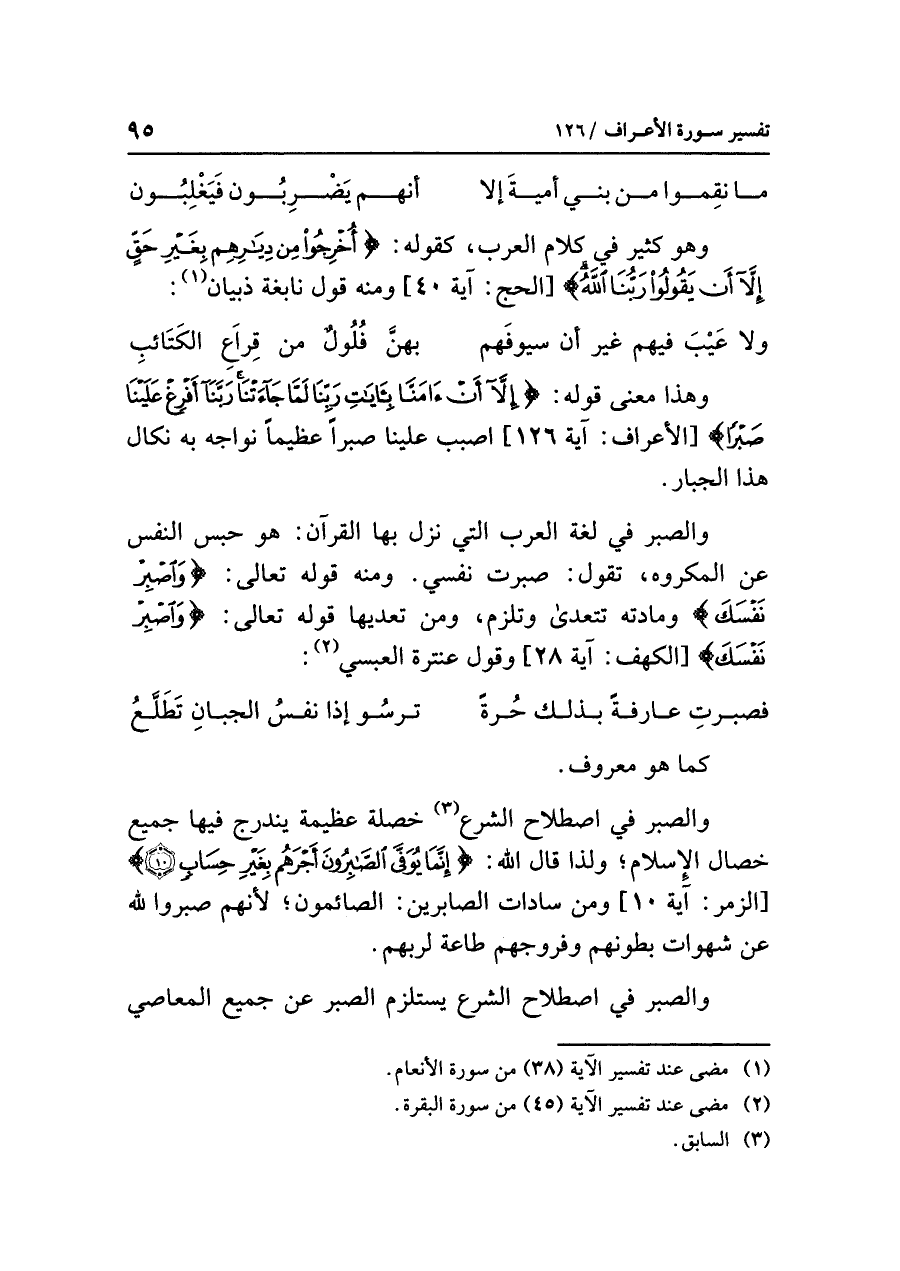 تفسير سـورة الأعـراف / ١٢٦ ٩٥
مـا نقِمـوا مـن بنـي أميـةَ إلا أنهـم يَضْـرِبُـون فَيَغْلِبُـون
وهو كثير في كلام العرب، كقوله: ﴿ أُخْرِجُوا۟ مِن دِيَـٰرِهِم بِغَيْرِ حَقٍّ
إِلَّآ أَن يَقُولُوا۟ رَبُّنَا ٱللَّهُ ۗ﴾ [الحج: آية ٤٠] ومنه قول نابغة ذبيان(١):
ولا عَيْبَ فيهم غير أن سيوفَهم بهنَّ فُلُولٌ من قِراَعِ الكَتَائبِ
وهذا معنى قوله: ﴿ إِلَّآ أَنْ ءَامَنَّا بِـَٔايَـٰتِ رَبِّنَا لَمَّا جَآءَتْنَا ۚ رَبَّنَآ أَفْرِغْ عَلَيْنَا
صَبْرًا﴾ [الأعراف: آية ١٢٦] اصبب علينا صبراً عظيماً نواجه به نكال
هذا الجبار.
والصبر في لغة العرب التي نزل بها القرآن: هو حبس النفس
عن المكروه، تقول: صبرت نفسي. ومنه قوله تعالى: ﴿وَٱصْبِرْ
نَفْسَكَ ﴾ ومادته تتعدىٰ وتلزم، ومن تعديها قوله تعالى: ﴿وَٱصْبِرْ
نَفْسَكَ﴾ [الكهف: آية ٢٨] وقول عنترة العبسي(٢):
فصبـرتِ عـارفـةً بـذلـك حُـرةً تـرسُـو إذا نفـسُ الجبـانِ تَطَلَّـعُ
كما هو معروف.
والصبر في اصطلاح الشرع(٣) خصلة عظيمة يندرج فيها جميع
خصال الإسلام؛ ولذا قال الله: ﴿ إِنَّمَا يُوَفَّى ٱلصَّـٰبِرُونَ أَجْرَهُم بِغَيْرِ حِسَابٍ ۝١٠﴾
[الزمر: آية ١٠] ومن سادات الصابرين: الصائمون؛ لأنهم صبروا لله
عن شهوات بطونهم وفروجهم طاعة لربهم.
والصبر في اصطلاح الشرع يستلزم الصبر عن جميع المعاصي
(١) مضى عند تفسير الآية (٣٨) من سورة الأنعام.
(٢) مضى عند تفسير الآية (٤٥) من سورة البقرة.
(٣) السابق.